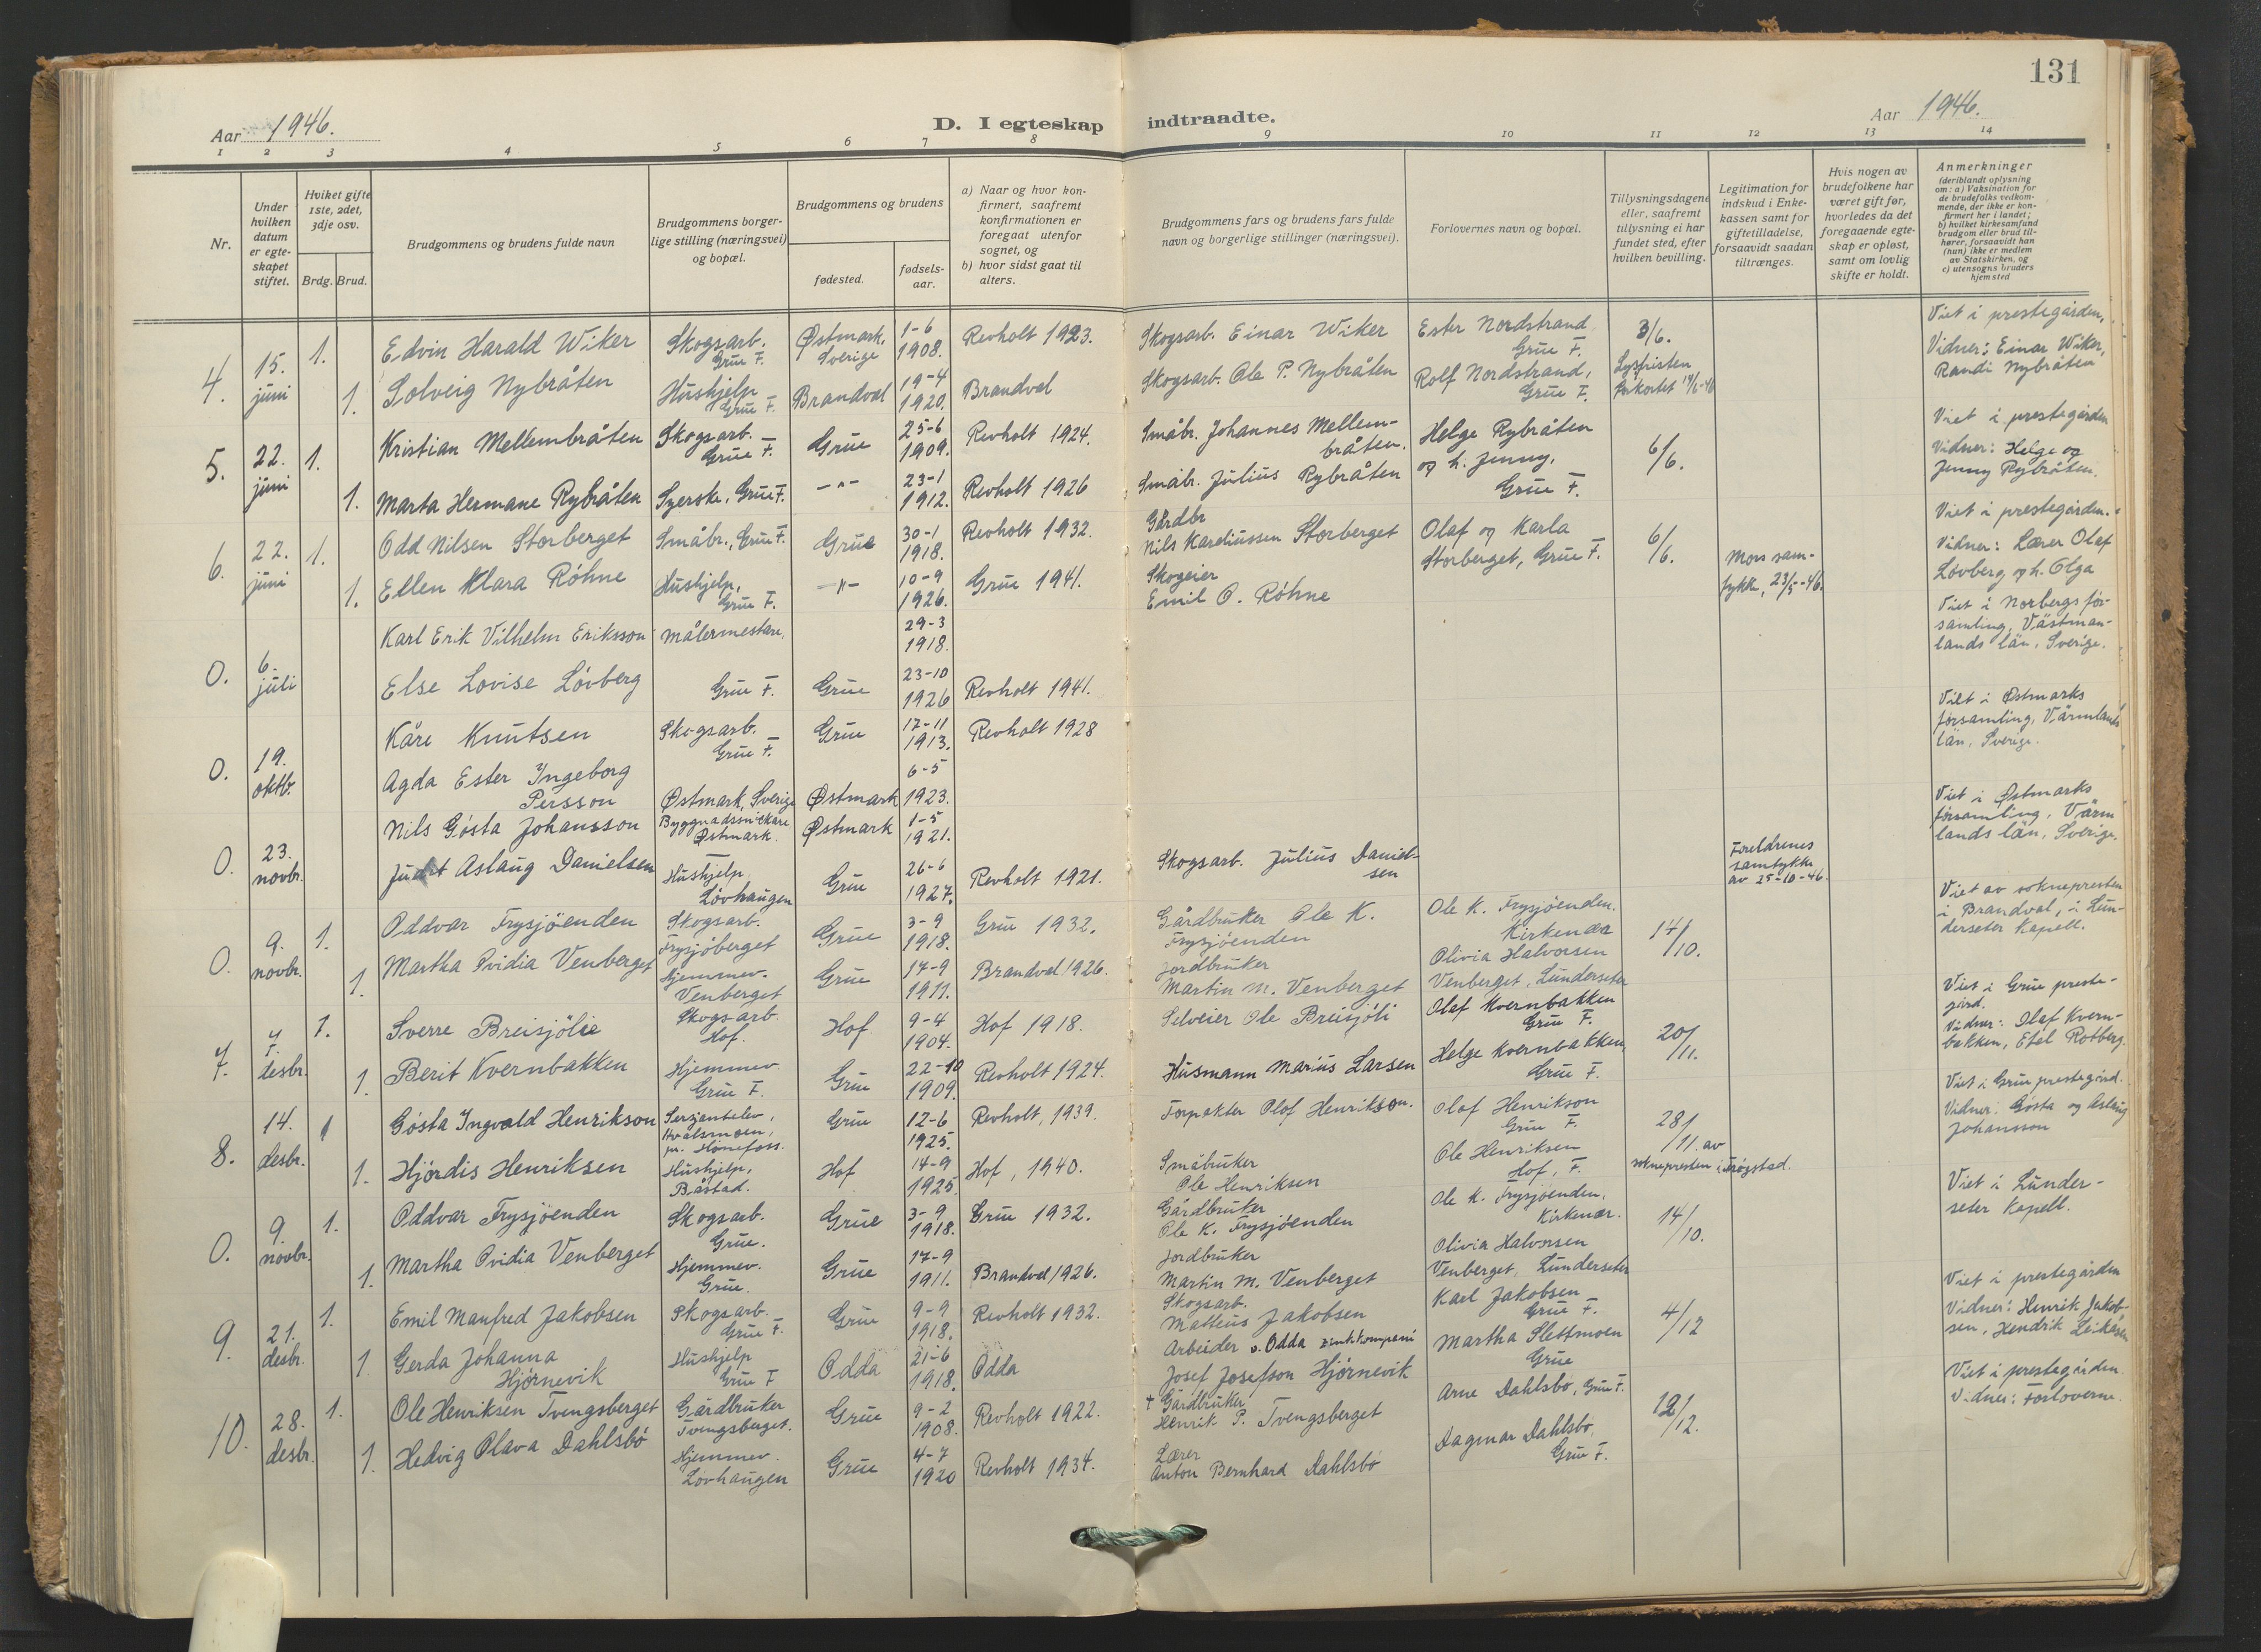 131
Aar 1946.
D. I egteskap indtraadte.
Aar 1946.
1 2 3 4 5 6 7 8 9 10 11 12 13 14
Nr.
Under hvilken datum er egteskapet stiftet.
Hviket gifte 1ste, 2det, 3dje osv.
Brdg. Brud.
Brudgommens og brudens fulde navn
Brudgommens borgerlige stilling (næringsvei) og bopæl.
Brudgommens og brudens
fødested.
fødselsaar.
a) Naar og hvor konfirmert, saafremt konfirmationen er foregaat utenfor sognet, og
b) hvor sidst gaat til alters.
Brudgommens fars og brudens fars fulde navn og borgerlige stillinger (næringsvei).
Forlovernes navn og bopæl.
Tillysningsdagene eller, saafremt tillysning ei har fundet sted, efter hvilken bevilling.
Legitimation for indskud i Enkekassen samt for giftetilladelse, forsaavidt saadan tiltrænges.
Hvis nogen av brudefolkene har været gift før, hvorledes da det foregaaende egteskap er opløst, samt om lovlig skifte er holdt.
Anmerkninger
(deriblandt oplysning om: a) Vaksination for de brudefolks vedkommende, der ikke er konfirmert her i landet; b) hvilket kirkesamfund brudgom eller brud tilhører, forsaavidt han (hun) ikke er medlem av Statskirken, og c) utensogns bruders hjemsted
4. 15. juni 1. Edvin Harald Wiker Skogsarb. Grue F. Østmark, Sverige 1-6 1908. Revholt 1923. Skogsarb. Einar Wiker Ester Nordstrand Grue F. 3/6. Viet i prestegården,
1. Solveig Nybråten Hushjelp Grue F. Brandval 19-4 1920. Brandval Skogsarb. Ole P. Nybråten Rolf Nordstrand, Grue F. Lysfristen forkortet 14/6-46 Vidner: Einar Wiker, Randi Nybråten
5. 22. juni 1. Kristian Mellembråten Skogsarb. Grue F. Grue 25-6 1909. Revholt 1924. Småbr. Johannes Mellembråten. Helge Rybråten og h. Jenny, Grue F. 6/6. Viet i prestegården
1. Marta Hermane Rybråten Syerske, Grue F. -"- 23-1 1912. Revholt 1926 Småbr. Julius Rybråten Vidner: Helge og Jenny Rybråten.
6. 22. juni 1. Odd Nilsen Storberget Småbr., Grue F. Grue 30-1 1918. Revholt 1932. Gårdbr Nils Kareliussen Storberget Olaf og Karla Storberget, Grue F. 6/6. Mors samtykke, 23/5-46. Viet i prestegården.
1. Ellen Klara Röhne Hushjelp, Grue F. -"- 10-9 1926. Grue 1941. Skogeier Emil O. Röhne Vidner: Lærer Olaf Lövberg og h. Olga
0. 6. juli Karl Erik Vilhelm Eriksson målermestare, 29-3 1918. Viet i Norbergs församling, Västmanlands län, Sverige.
Else Lovise Lövberg Grue F. Grue 23-10 1926 Revholt 1941.
0. 19. oktb. Kåre Knutsen Skogsarb. Grue F. Grue 17-11 1913. Revholt 1928 Viet i Østmarks församling, Värmlands län, Sverige.
Agda Ester Ingeborg Persson Østmark, Sverige Østmark 6-5 1923.
0. 23. novbr. Nils Gösta Johansson Byggnadssnickare Østmark. Østmark 1-5 1921. Viet i Østmarks församling, Värmlands län, Sverige.
Judit Aslaug Danielsen Hushjelp Lövhaugen Grue 26-6 1927. Revholt 1921. Skogsarb. Julius Danielsen Foreldrenes samtykke av 25-10-46.
0. 9. novbr. 1. Oddvar Frysjöenden Skogsarb. Frysjöberget Grue 3-9 1918. Grue 1932. Gårdbruker Ole K. Frysjöenden Ole K. Frysjöenden, Kirkenær 14/10. Viet av soknepresten i Brandval, i Lunderseter kapell.
1. Martha Ovidia Venberget Hjemmev. Venberget Grue 17-9 1911. Brandval 1926. Jordbruker Martin M. Venberget Olivia Halvorsen Venberget, Lunderseter
7. 7. desbr. 1. Sverre Breisjölie Skogsarb. Hof. Hof 9-4 1904. Hof 1918. Selveier Ole Breisjöli Olaf Kvernbakken Grue F. 20/11. Viet i Grue prestegård.
1. Berit Kvernbakken Hjemmev. Grue F. Grue 22-10 1909. Revholt 1924. Husmann Marius Larsen Helge Kvernbakken, Grue F. Vidner: Olaf Kvernbakken, Etel Rotberg.
8. 14. desbr. 1 Gösta Ingvald Henrikson Sersjantelev, Hvalsmoen, pr. Hönefoss. Grue 12-6 1925. Revholt, 1939. Forpakter Olof Henrikson. Olof Henrikson Grue F. 28/11. av soknepresten i Trögstad. Viet i Grue prestegård.
1. Hjördis Henriksen Hushjelp, Båstad. Hof 14-9 1925. Hof, 1940. Småbruker Ole Henriksen Ole Henriksen Hof, F. Vidner: Gösta og Aslaug Johansson
0. 9. novbr. 1. Oddvar Frysjöenden Skogsarb. Grue. Grue 3-9 1918. Grue 1932. Gårdbruker Ole K. Frysjöenden Ole K. Frysjöenden, Kirkenær. 14/10. Viet i Lunderseter kapell.
1. Martha Ovidia Venberget Hjemmev. Grue. Grue 17-9 1911. Brandval 1926. Jordbruker Martin M. Venberget Olivia Halvorsen Venberget, Lunderseter
9. 21. desbr. 1. Emil Manfred Jakobsen Skogsarb. Grue F. Grue 9-9 1918. Revholt 1932. Skogsarb. Matteus Jakobsen Karl Jakobsen Grue F. 4/12 Viet i prestegården
1. Gerda Johanna Hjørnevik Hushjelp Grue F Odda 21-6 1918. Odda Arbeider v. Odda zinkkompani Josef Josefson Hjørnevik Martha Slettmoen Grue Vidner: Henrik Jakobsen, Hendrik Leikåsen
10. 28. desbr. 1. Ole Henriksen Tvengsberget Gårdbruker Tvengsberget. Grue 9-2 1908. Revholt 1922. † Gårdbruker Henrik P. Tvengsberget Arne Dahlsbö, Grue F. 12/12. Viet i prestegården
1. Hedvig Olava Dahlsbö Hjemmev. Lövhaugen Grue 4-7 1920 Revholt 1934. Lærer Anton Bernhard Dahlsbö Dagmar Dahlsbö, Grue F. Vidner: Forloverne.